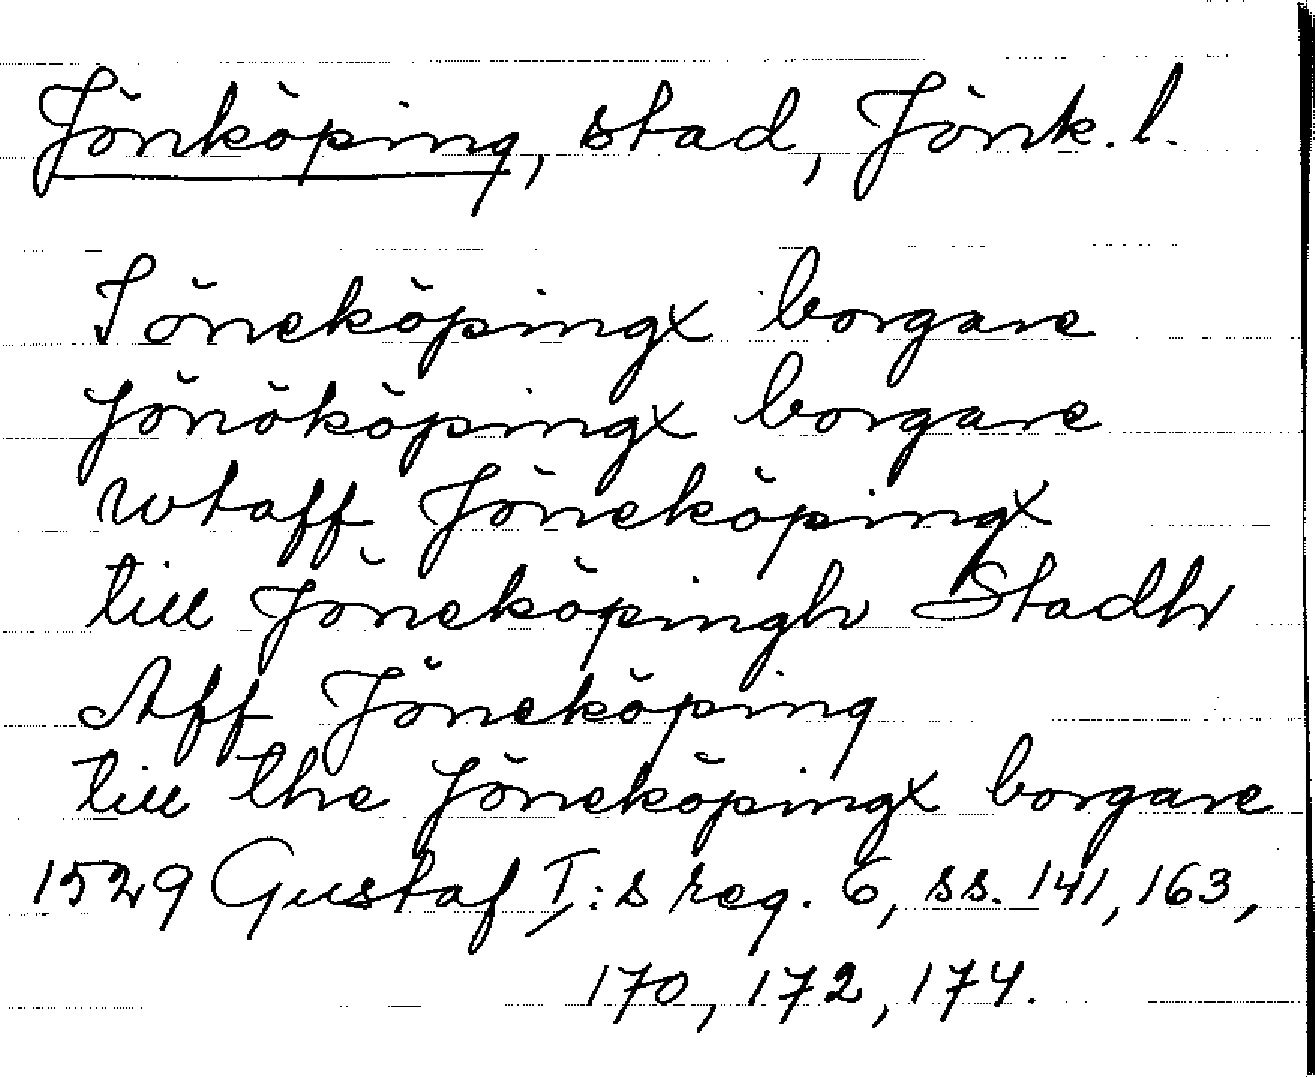 Jönköping, stad, Jönk. l.
Jöneköpingx borgare
jönököpingx borgare
wtaff Jöneköpingx
till Jöneköpingh Stadh
Aff Jöneköping
till the Jöneköpingx borgare
1529 Gustaf I:s reg. 6, ss. 141, 163,
170, 172, 174.